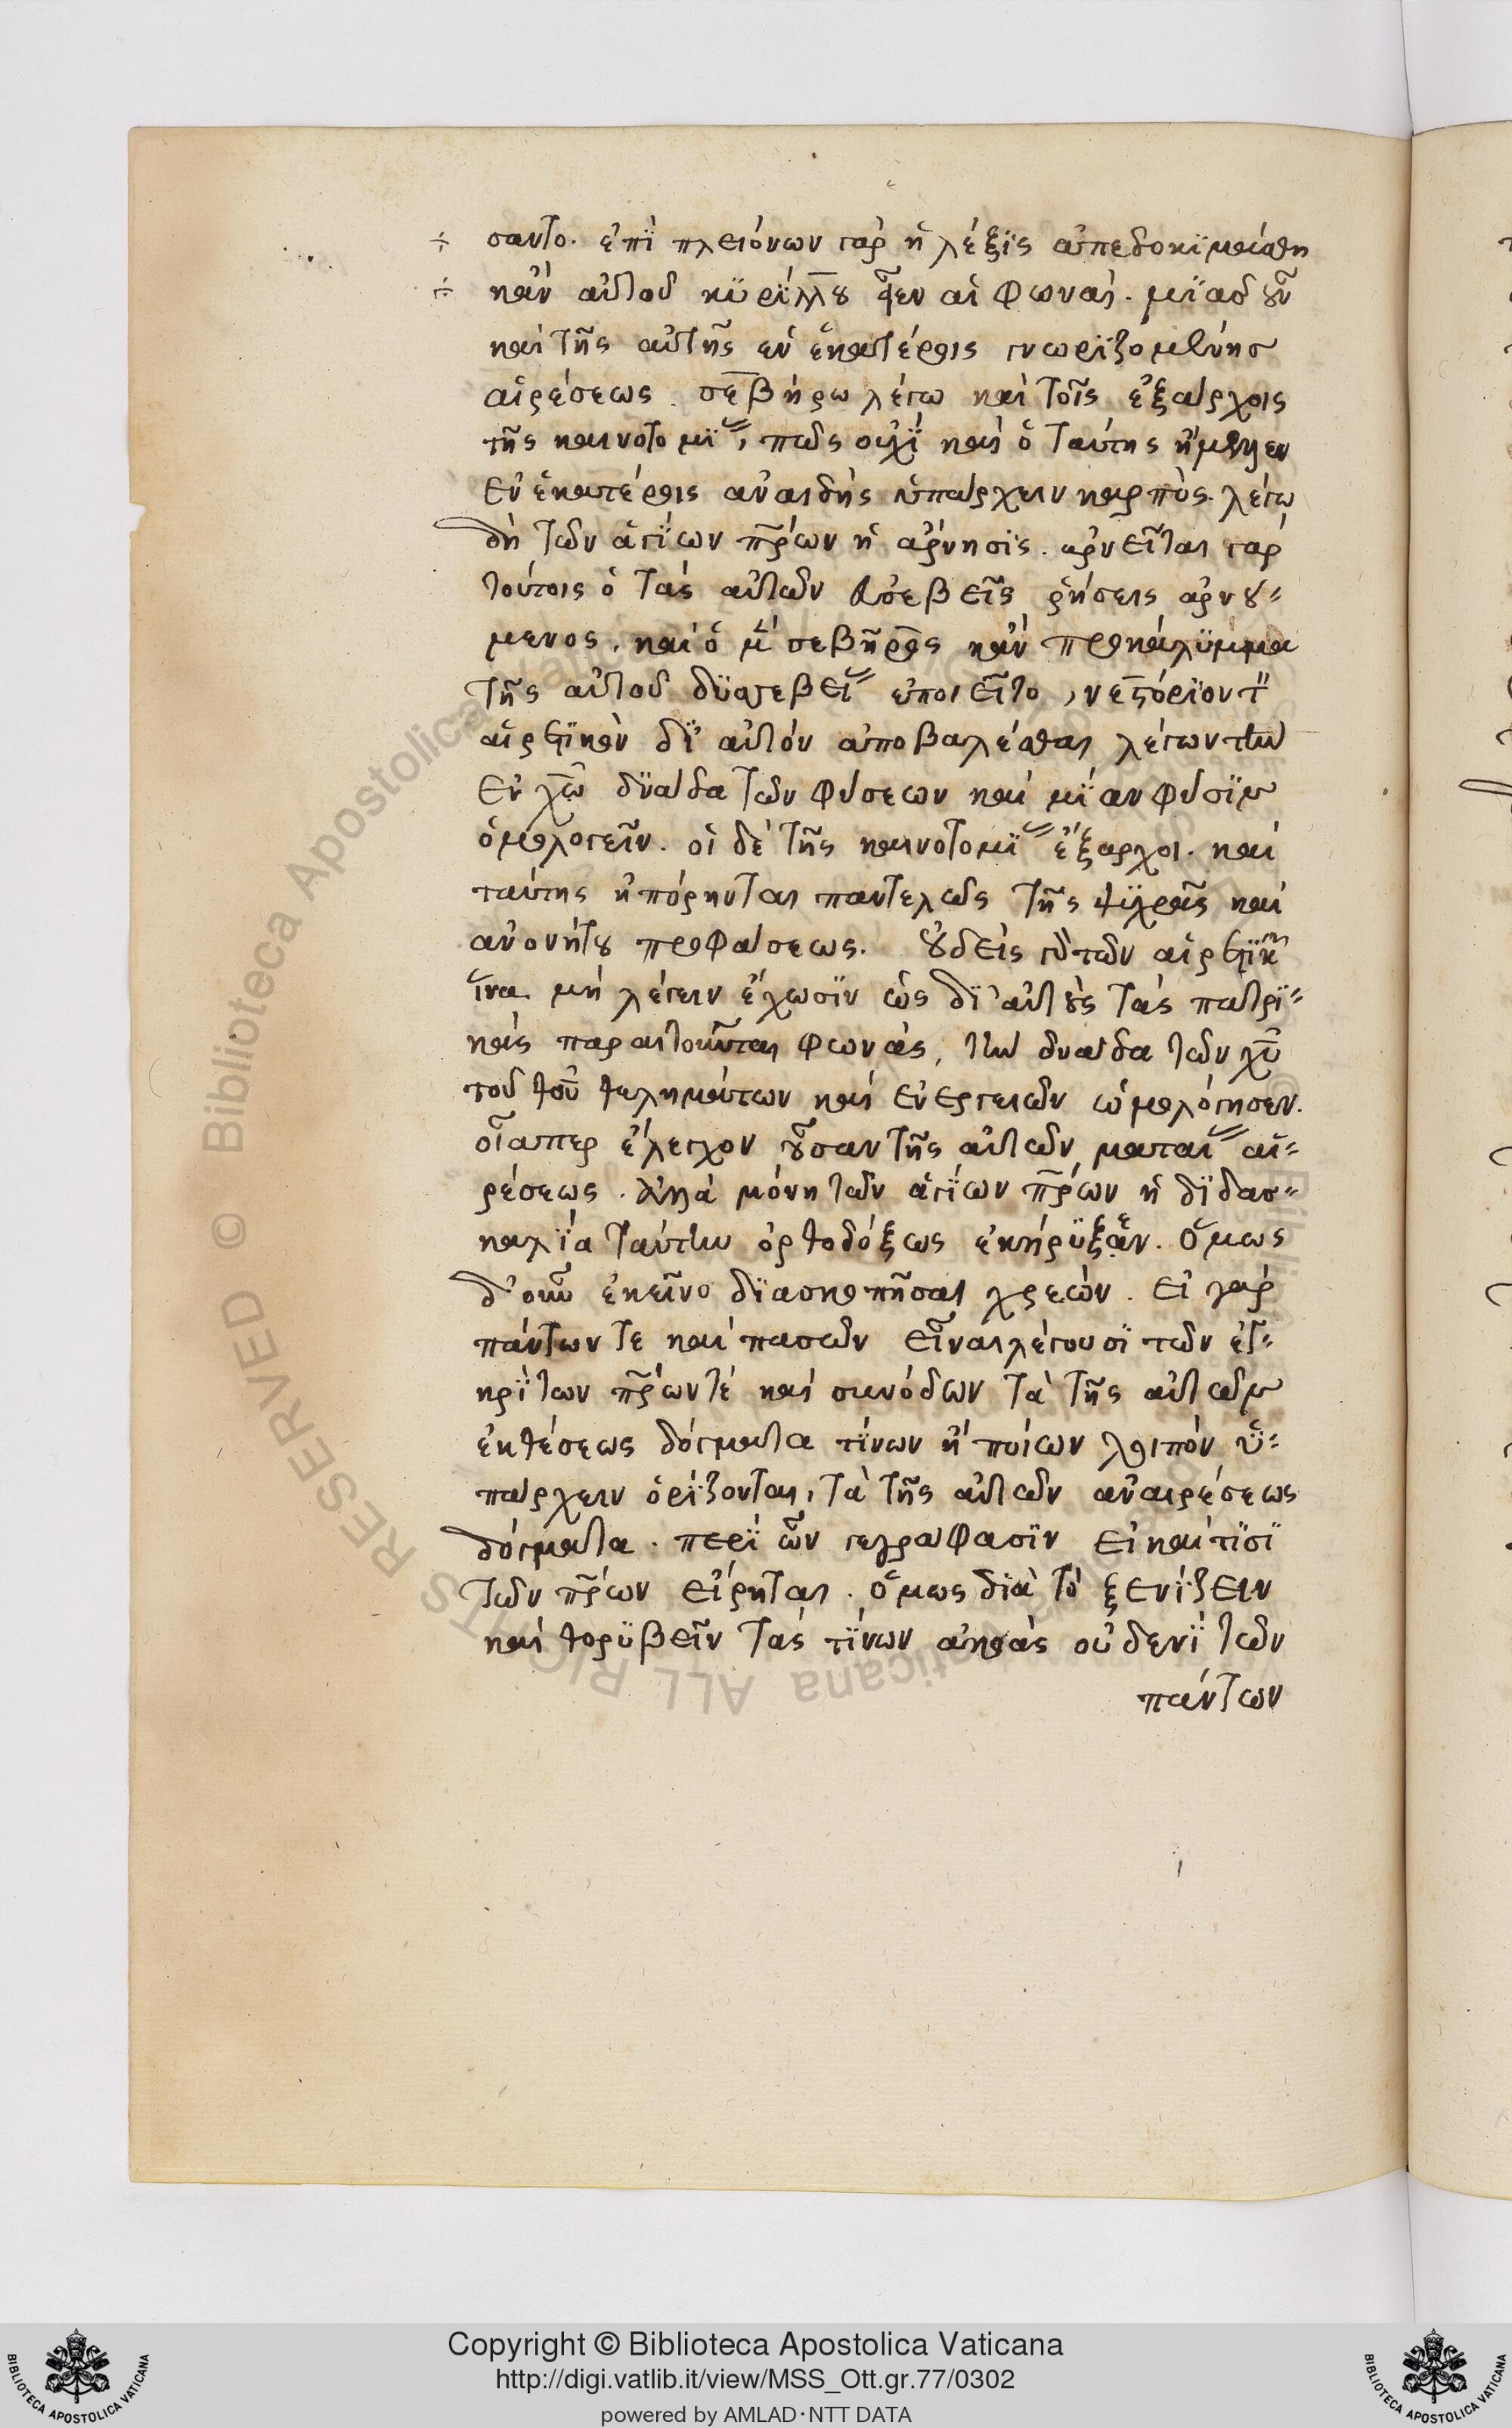 σαντο. ἐπῒ πλειόνων γαρ ἡ λέξϊς ἀπεδοκϊμάσθη
κἂν αὐτοῦ κϋρΐλλου ὦσιν αἱ φωναί. μϊᾶς οὖν
καὶ τῆς αὐτῆς ἐν ἑκατέροις γνωρϊζομένης
αἱρέσεως. σεβήρω λέγω καὶ τοῖς ἐξάρχοις
τῆς καινοτομΐας, πῶς οὐχῒ καὶ ὁ ταύτης ἤμελλεν
ἐν ἑκατέροις ἀναιδὴς ὑπάρχειν καρπὸς. λέγω
δὴ τῶν ἁγΐων πρων ἡ ἄρνησϊς. ἀρνεῖται γαρ
τούτοις ὁ τὰς αὐτῶν εὐσεβεῖς ῥήσεις ἀρνού-
μενος. καὶ ὁ μὲν σεβῆρος κἂν προκάλϋμμα
τῆς αὐτοῦ δϋσσεβείας ἐποιεῖτο, νεστόρϊον τὸν
αἱρετϊκὸν δϊ' αὐτὸν ἀποβαλέσθαι λέγων τὴν
ἐν χω δϋάδα τῶν φύσεων καὶ μΐαν φύσϊν
ὁμολογεῖν. οἱ δὲ τῆς καινοτομΐας ἔξαρχοι. καὶ
ταύτης ἠπόρηνται παντελῶς τῆς ψϋχρᾶς καὶ
ἀνονήτου προφάσεως. οὐδεὶς γὰρ τῶν αἱρετϊκῶν
ἵνα μὴ λέγειν ἔχωσϊν ὡς δϊ' αὐτοὺς τὰς πατρϊ-
κὰς παραιτοῦνται φωνὰς, τὴν δυάδα τῶν χυ
τοῦ θεοῦ θελημάτων καὶ ἐνεργειῶν ὡμολόγησεν.
οἷάπερ ἔλεγχον οὖσαν τῆς αὐτῶν ματαίας αἱ-
ρέσεως. ἀλλὰ μόνη τῶν ἁγΐων πρων ἡ δϊδασ-
καλΐα ταύτην ὀρθοδόξως ἐκήρϋξεν. ὅμως
δ' οὖν ἐκεῖνο δϊασκοπῆσαι χρεών. εἰ γαρ
πάντων τε καὶ πασῶν εἶναι λέγουσϊ τῶν ἐγ-
κρΐτων πρων τὲ καὶ συνόδων τὰ τῆς αὐτῶν
ἐκθέσεως δόγματα τΐνων ἢ ποίων λοιπὸν ὑ-
πάρχειν ὁρΐζονται, τὰ τῆς αὐτῶν ἀναιρέσεως
δόγματα. περῒ ὧν γεγράφασϊν εἰ καὶ τϊσῒ
τῶν πρων εἴρηται. ὅμως δϊὰ τὸ ξενίζειν
καὶ θορϋβεῖν τὰς τϊνων ἀκοὰς οὐδενῒ τῶν
πάντων
Copyright © Biblioteca Apostolica Vaticana
http://digi.vatlib.it/view/MSS_Ott.gr.77/0302
powered by AMLAD·NTT DATA